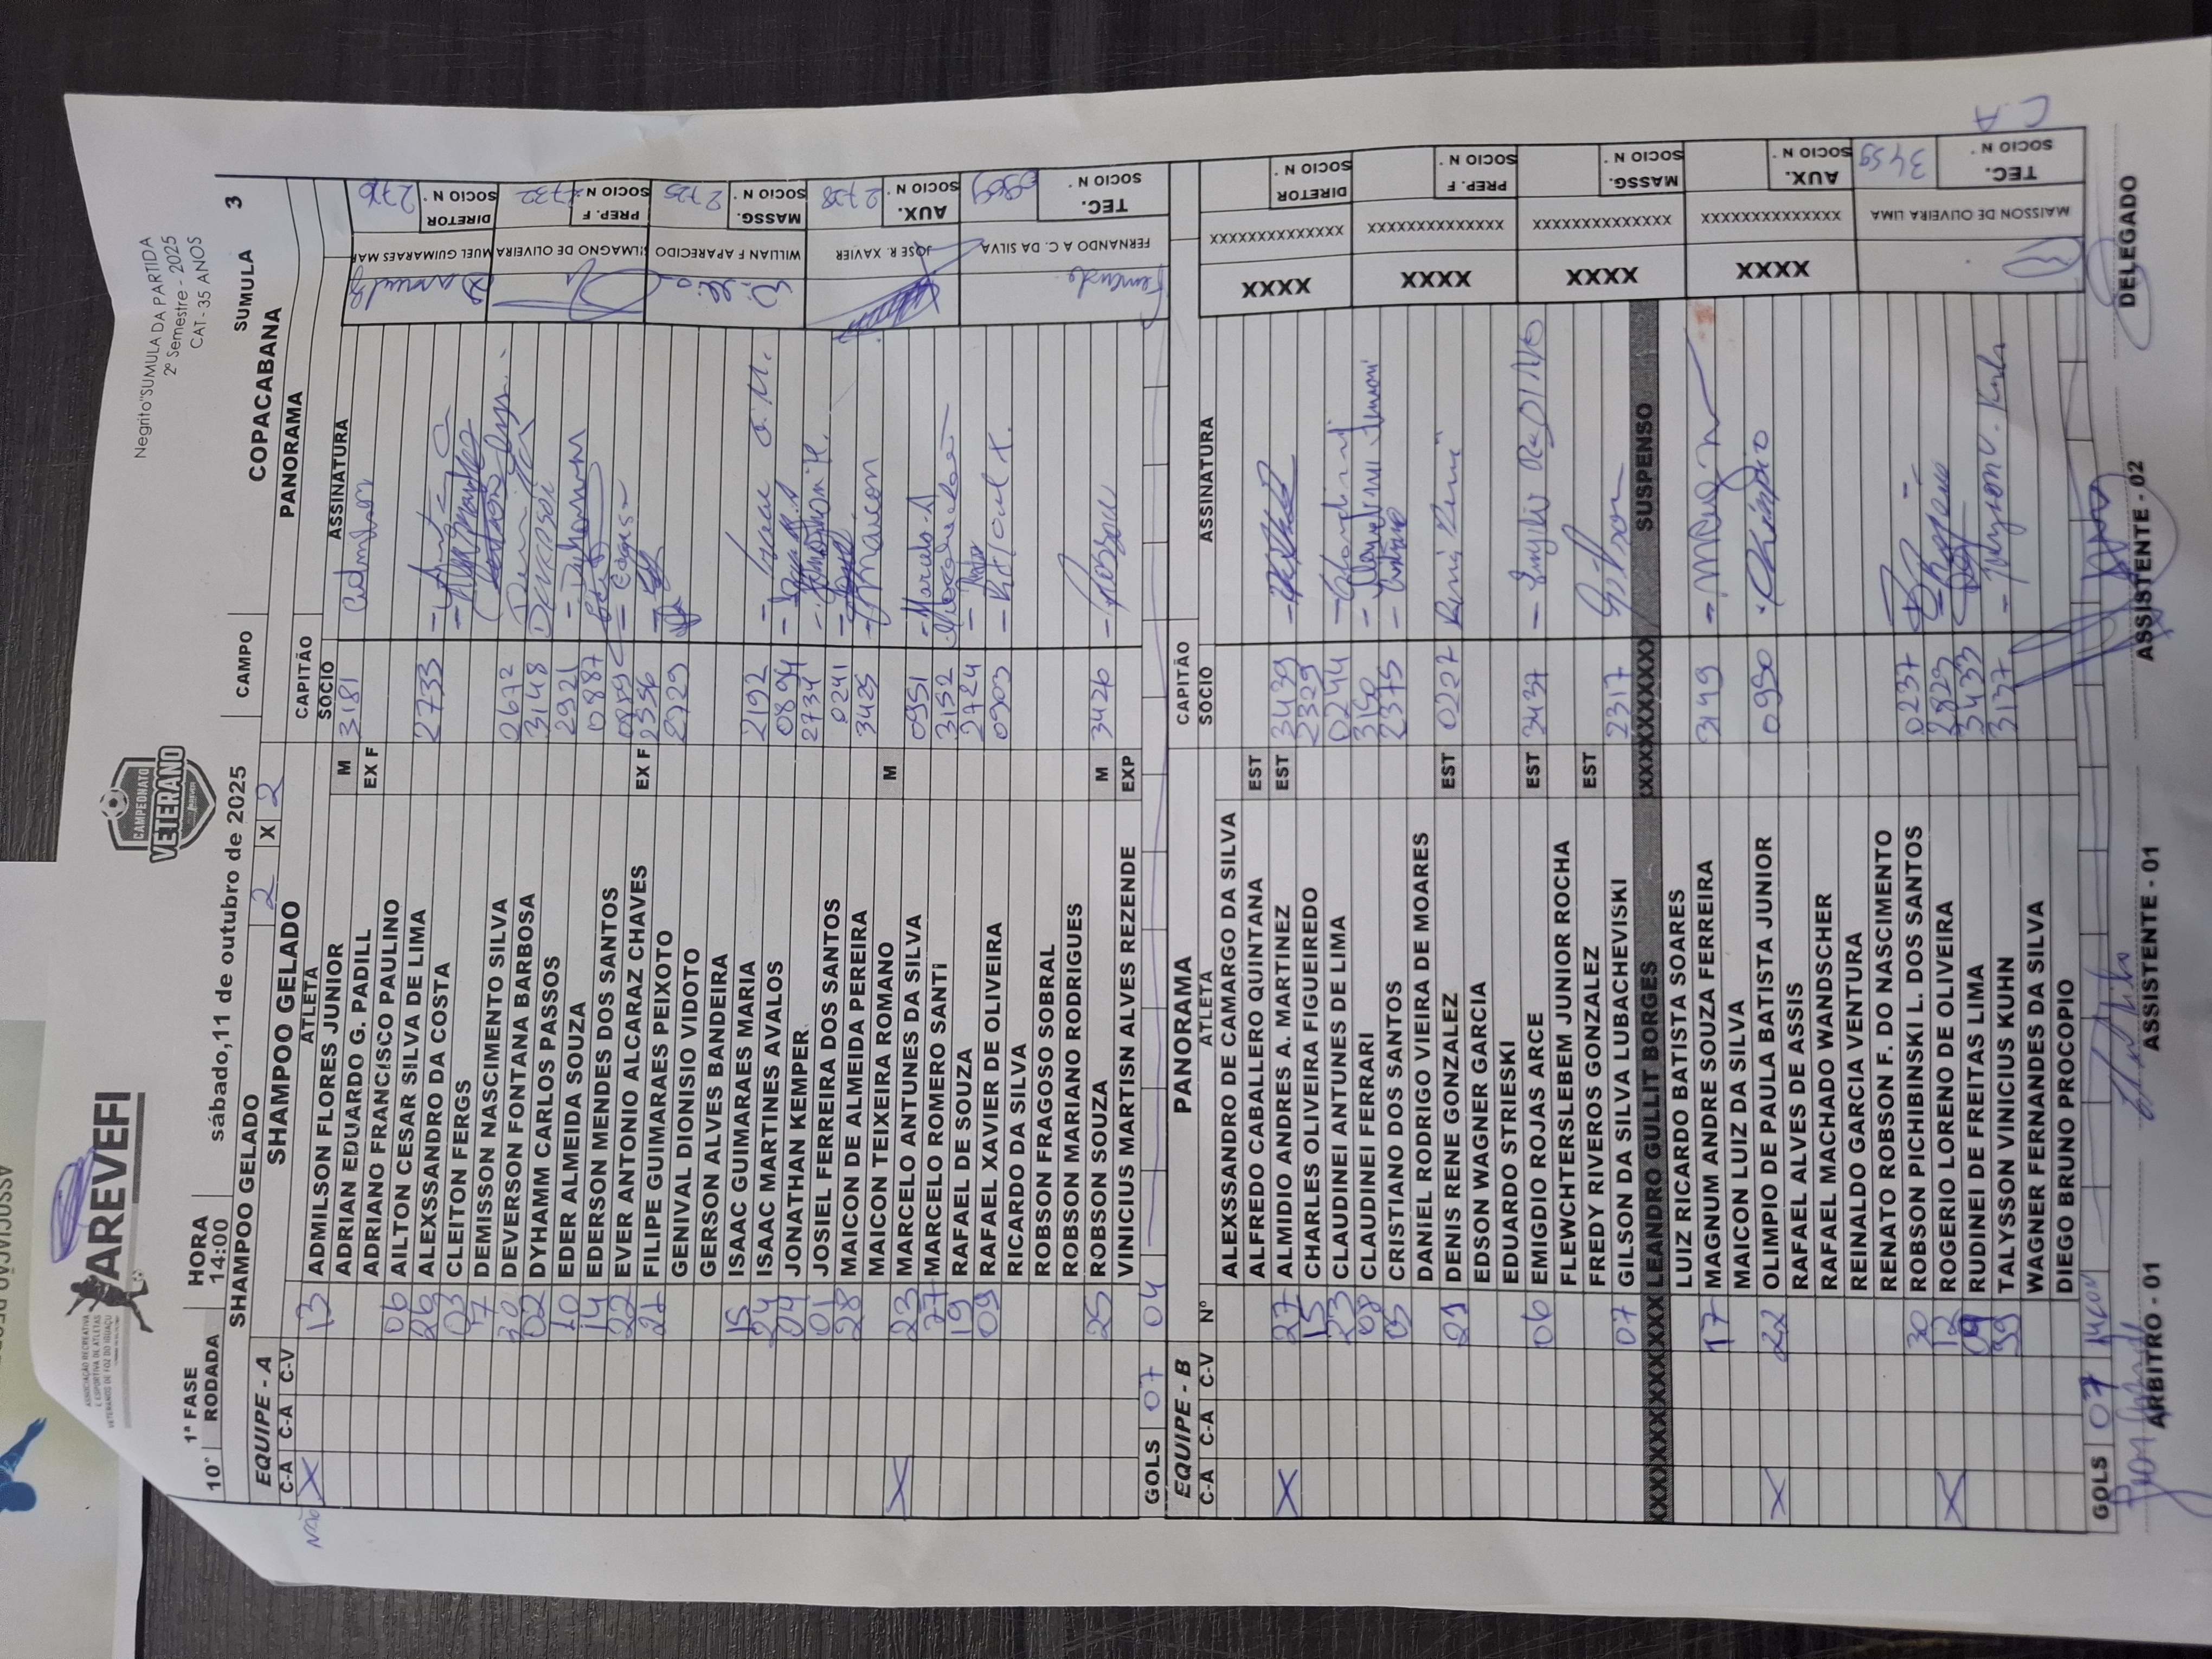 AREVEFI
ASSOCIAÇÃO RECREATIVA
E ESPORTIVA DE ATLETAS
VETERANOS DE FOZ DO IGUAÇU
CAMPEONATO
VETERANO
Negrito"SUMULA DA PARTIDA
2º Semestre - 2025
CAT - 35 ANOS
1ª FASE HORA
10° RODADA 14:00 sábado,11 de outubro de 2025 CAMPO SUMULA 3
SHAMPOO GELADO 2 X 2 COPACABANA
PANORAMA
EQUIPE - A SHAMPOO GELADO CAPITÃO
C-A C-A C-V ATLETA SOCIO ASSINATURA
Não X 13 ADMILSON FLORES JUNIOR M 3181 Admilson
ADRIAN EDUARDO G. PADILL EX F
ADRIANO FRANCISCO PAULINO
06 AILTON CESAR SILVA DE LIMA 2733
26 ALEXSSANDRO DA COSTA
03 CLEITON FERGS
17 DEMISSON NASCIMENTO SILVA 2672
20 DEVERSON FONTANA BARBOSA 3148
02 DYHAMM CARLOS PASSOS 2921
10 EDER ALMEIDA SOUZA 0887
14 EDERSON MENDES DOS SANTOS 0859
22 EVER ANTONIO ALCARAZ CHAVES EX F 2356
21 FILIPE GUIMARAES PEIXOTO 2729
GENIVAL DIONISIO VIDOTO
GERSON ALVES BANDEIRA
15 ISAAC GUIMARAES MARIA 2192 Isaac G. M.
24 ISAAC MARTINES AVALOS 0894
04 JONATHAN KEMPER 2734
01 JOSIEL FERREIRA DOS SANTOS 0241
28 MAICON DE ALMEIDA PEREIRA 3425 Maicon
MAICON TEIXEIRA ROMANO M
X 23 MARCELO ANTUNES DA SILVA 0951 Marcelo A
27 MARCELO ROMERO SANTI 3152
19 RAFAEL DE SOUZA 2724
09 RAFAEL XAVIER DE OLIVEIRA 0903 Rafael X.
RICARDO DA SILVA
ROBSON FRAGOSO SOBRAL
ROBSON MARIANO RODRIGUES
25 ROBSON SOUZA M 3426
VINICIUS MARTISN ALVES REZENDE EXP
GOLS 07 04
DIRETOR SOCIO N° 2716
MUEL GUIMARAES MAR
PREP. F SOCIO N° 2732
SILMAGNO DE OLIVEIRA
MASSG. SOCIO N° 2725
WILLIAN F APARECIDO
AUX. SOCIO N° 2728
JOSE R. XAVIER
TEC. SOCIO N° 0969
FERNANDO A C. DA SILVA
Fernando
EQUIPE - B PANORAMA CAPITÃO
C-A C-A C-V Nº ATLETA SOCIO ASSINATURA
ALEXSSANDRO DE CAMARGO DA SILVA
ALFREDO CABALLERO QUINTANA EST
X 27 ALMIDIO ANDRES A. MARTINEZ EST 3439
15 CHARLES OLIVEIRA FIGUEIREDO 2329
23 CLAUDINEI ANTUNES DE LIMA 0244
08 CLAUDINEI FERRARI 3150
05 CRISTIANO DOS SANTOS 2375
DANIEL RODRIGO VIEIRA DE MOARES
21 DENIS RENE GONZALEZ EST 0227
EDSON WAGNER GARCIA
EDUARDO STRIESKI
06 EMIGDIO ROJAS ARCE EST 3437
FLEWCHTERSLEBEM JUNIOR ROCHA
FREDY RIVEROS GONZALEZ EST
07 GILSON DA SILVA LUBACHEVISKI 2317 Gilson
XXXXXXXXXXXXXXX LEANDRO GULLIT BORGES XXXXXXXXXX SUSPENSO
LUIZ RICARDO BATISTA SOARES
17 MAGNUM ANDRE SOUZA FERREIRA 3149
MAICON LUIZ DA SILVA
X 22 OLIMPIO DE PAULA BATISTA JUNIOR 0950 Olimpio
RAFAEL ALVES DE ASSIS
RAFAEL MACHADO WANDSCHER
REINALDO GARCIA VENTURA
RENATO ROBSON F. DO NASCIMENTO
30 ROBSON PICHIBINSKI L. DOS SANTOS 0237
X 12 ROGERIO LORENO DE OLIVEIRA 2829
09 RUDINEI DE FREITAS LIMA 3433
39 TALYSSON VINICIUS KUHN 3137 Talysson V. Kuhn
WAGNER FERNANDES DA SILVA
DIEGO BRUNO PROCOPIO
GOLS 07
DIRETOR SOCIO N°
XXXXXXXXXXXXXX XXXX
PREP. F SOCIO N°
XXXXXXXXXXXXXX XXXX
MASSG. SOCIO N°
XXXXXXXXXXXXXX XXXX
AUX. SOCIO N°
XXXXXXXXXXXXXX XXXX
TEC. SOCIO N° 3459
MAISSON DE OLIVEIRA LIMA
C.A
ARBITRO - 01 ASSISTENTE - 01 ASSISTENTE - 02 DELEGADO